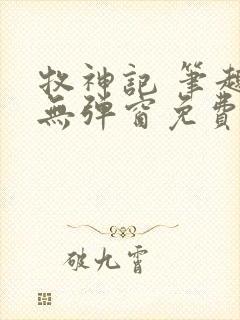 牧神記 筆趣
無彈窗免費
破九霄